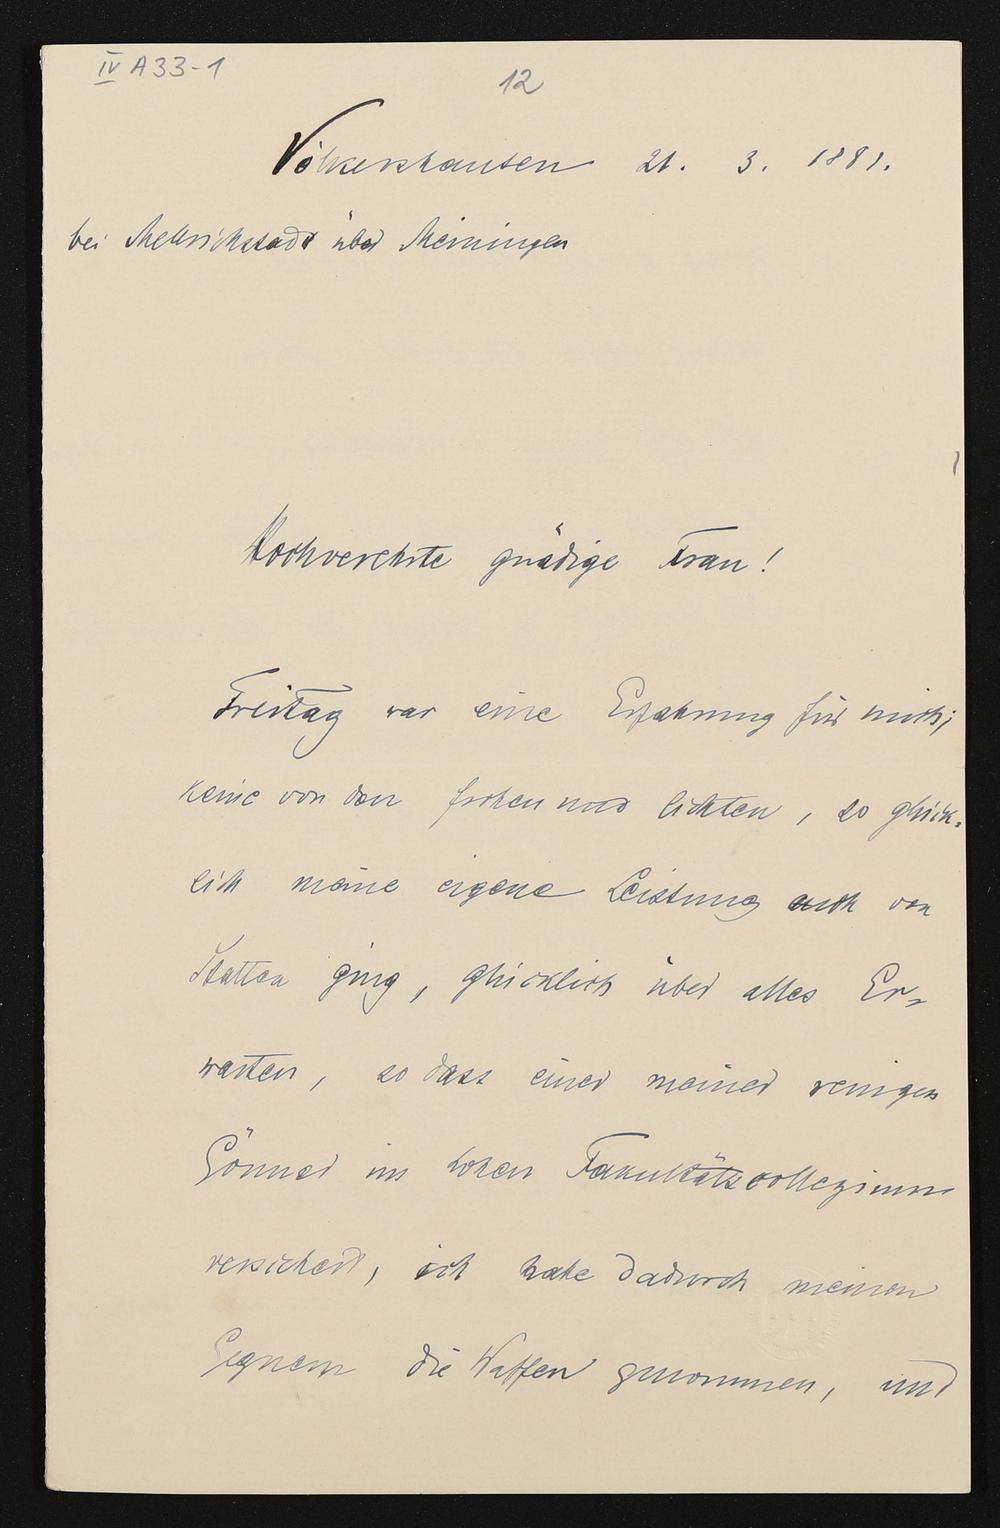 IV A33-1
12
Völkershausen 21. 3. 1891.
bei Mellrichstadt über Meiningen
Hochverehrte gnädige Frau!
Freitag war eine Erfahrung für mich;
keine von den frohen und lichten, so glück-
lich meine eigene Leistung auch von
Statten ging, glücklich über alles Er-
warten, so dass einer meiner wenigen
Gönner im hohen Fakultätscollegium
versichert, ich habe dadurch meinen
Gegnern die Waffen genommen, und